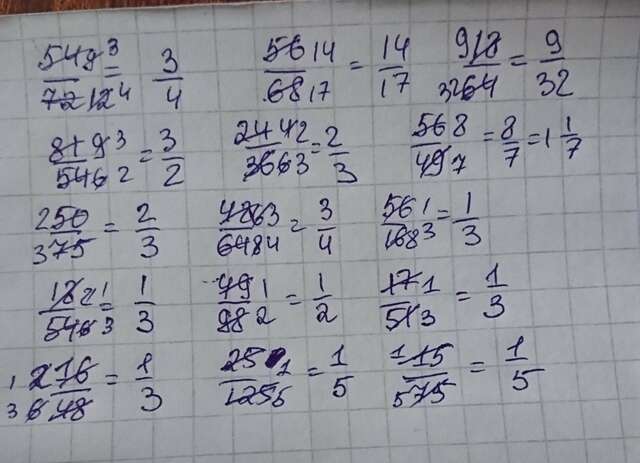 54 9 3 / 72 12 4 = 3/4    56 14 / 68 17 = 14/17    9 18 / 32 64 = 9/32
81 9 3 / 54 6 2 = 3/2    24 4 2 / 36 6 3 = 2/3    56 8 / 49 7 = 8/7 = 1 1/7
250/375 = 2/3    48 6 3 / 64 8 4 = 3/4    56 1 / 168 3 = 1/3
18 2 1 / 54 6 3 = 1/3    49 1 / 98 2 = 1/2    17 1 / 51 3 = 1/3
1 216 / 3 648 = 1/3    25 1 / 125 5 = 1/5    1 115 / 5 575 = 1/5